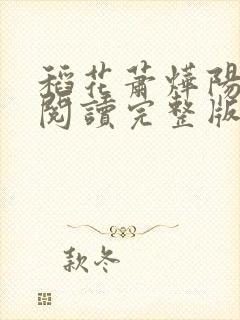 稻花蕭燁陽
閱讀完整版
款冬